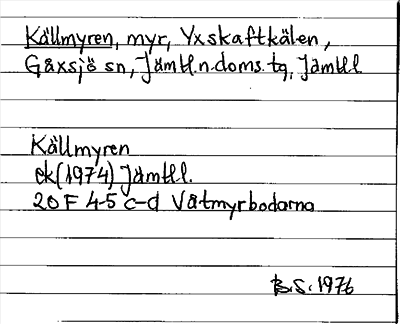 Källmyren, myr, Yxskaftkälen,
Gåxsjö sn, Jämtl.n.doms.tg, Jämtl.
Källmyren
ek(1974) Jämtl.
20F 4-5 c-d Våtmyrbodarna
B.S. 1976